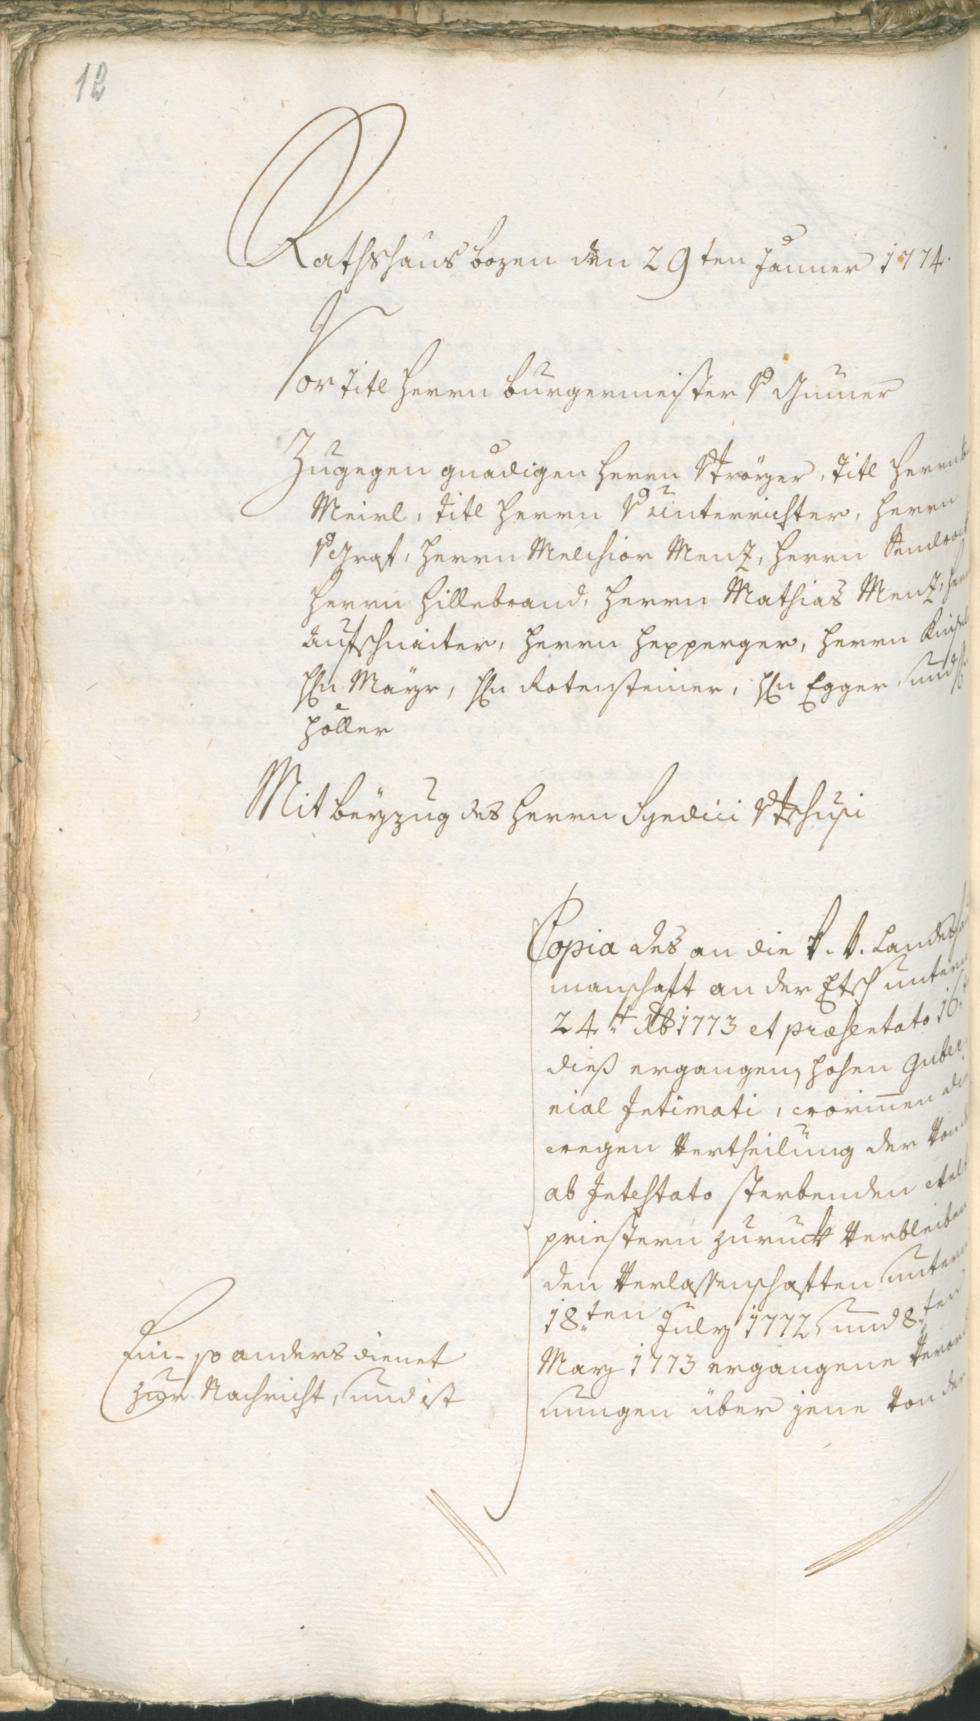 12
Rathshaus bozen den 29ten Jänner 1774.
Vor Titl Herrn burgermeister v Gumer
Zugegen gnädigen Herrn v Tröyer, Titl Herrn
Meirl, Titl Herrn v unterrichter, Herrn
v Graf, Herrn Melchior Menz, Herrn
Herrn Hillebrand, Herrn Mathias Menz,
Aufschnaiter, Herrn Hepperger, Herrn
Hn Mayr, Hn Rotensteiner, Hn Egger und
Höller
Mit beyzug des Herrn Syndici v Tschusi
Copia des an die V. Ö. Landts
manschaft an der Etsch unterm
24.t Xb 1773 et præsentato 10
dieß ergangen, hohen Guber
nial Intimati, worinnen die
wegen Vertheilung der Von
ab Intestato sterbenden Welt
priestern zuruck Verbleiben
den Verlassenschafften unterm
18.ten July 1772, und 8.ten
Marz 1773 ergangene Verord
nungen über jene Von der
Ein- so anders dienet
zur Nachricht, und ist